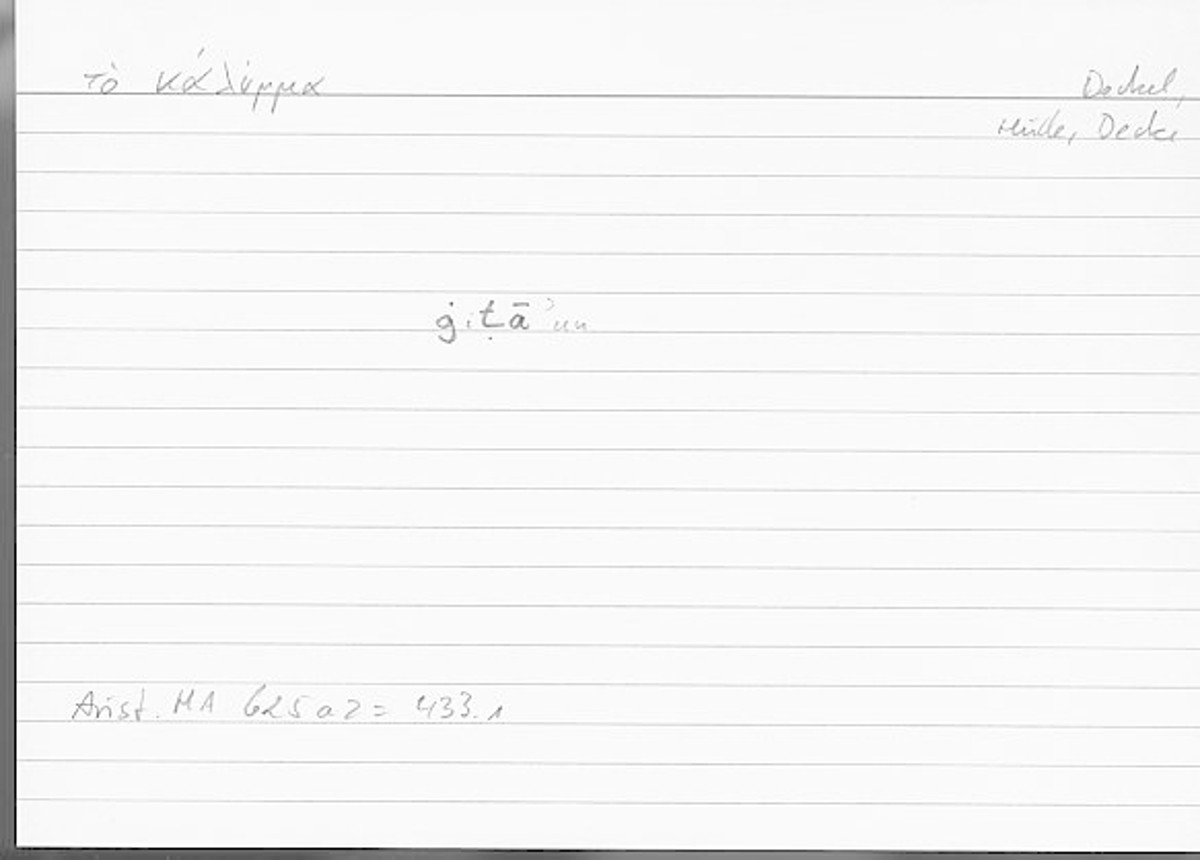 τὸ κάλυμμα
Deckel,
Hülle, Decke
ġiṭāʾun
Arist. HA 625 a 2 = 433.1